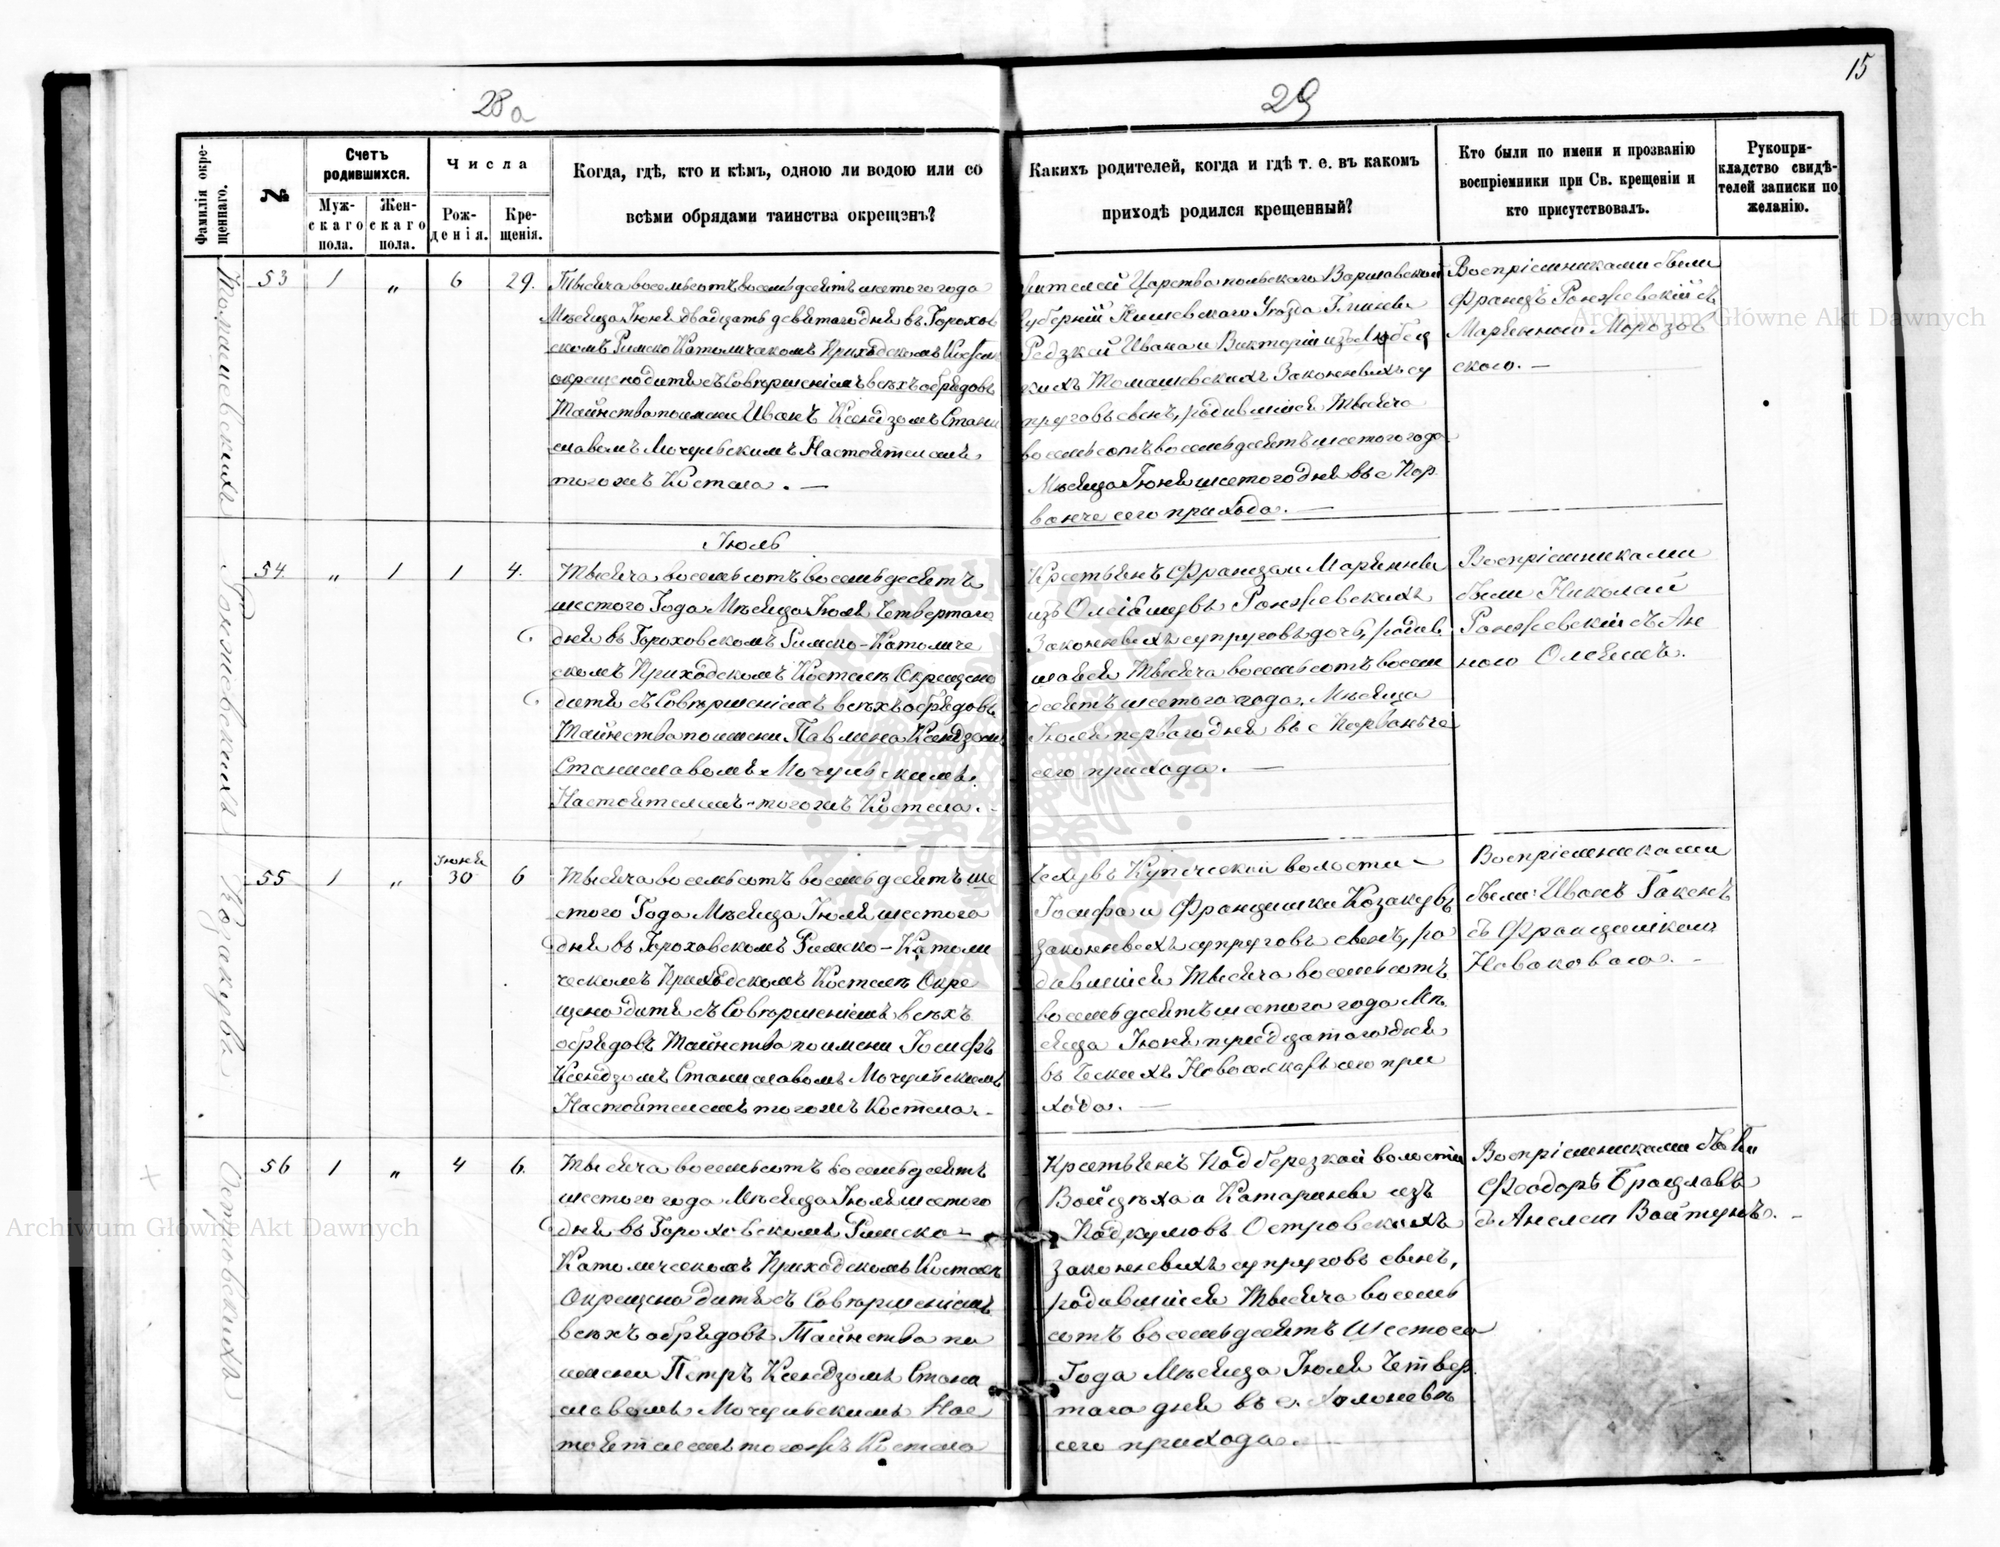 15
28а
29
Фамилія окрещеннаго.
№
Счетъ родившихся.
Мужскаго пола.
Женскаго пола.
Числа
Рожденія.
Крещенія.
Когда, гдѣ, кто и кѣмъ, одною ли водою или со
всѣми обрядами таинства окрещэнъ?
Какихъ родителей, когда и гдѣ т. е. въ какомъ
приходѣ родился крещенный?
Кто были по имени и прозванію
воспріемники при Св. крещеніи и
кто присутствовалъ.
Рукопри-
кладство свидѣ-
телей записки по
желанію.
Томашевскихъ
53 1 „ 6 29.
Тысяча восемьсотъ восемьдесятъ шестого года
Мѣсяца Іюня двадцать девятого дня въ Горохов
скомъ Римско Католическомъ Приходскомъ Костелѣ
окрещено дитя съ Совершеніемъ всѣхъ обрядовъ
Таинства по имени Иванъ Ксендзомъ Стани
славомъ Мочульскимъ Настоятелемъ
тогожъ Костела. —
жителей Царства польскаго Варшавской
Губерніи Уѣзда Гмины
Ивана и Викторіи изъ
Томашевскихъ Законныхъ су
пруговъ сынъ, родившійся Тысяча
восемьсотъ восемьдесятъ шестого года
Мѣсяца Іюня шестого дня въ с Пор
ванче сего прихода. —
Воспріемниками были
Францъ Ронжевскій съ
Маріянною Морозов
скою. —
Іюль
Ронжевскихъ
54. „ 1 1 4.
Тысяча восемьсотъ восемьдесятъ
шестого Года Мѣсяца Іюля Четвертаго
дня въ Гороховскомъ Римско-Католиче
скомъ Приходскомъ Костелѣ Окрещено
дитя съ Совершеніемъ всѣхъ обрядовъ
Таинства по имени Павлина Ксендзомъ
Станиславомъ Мочульскимъ
Настоятелемъ-тогожъ Костела. -
Крестьянъ Франца и Маріянны
изъ Ронжевскихъ
Законныхъ супруговъ дочь, родив
шаяся Тысяча восемьсотъ восемь
десятъ шестого года, Мѣсяца
Іюля перваго дня въ с Порванче
сего прихода. —
Воспріемниками
были Николай
Ронжевскій съ Ан
ною
Козакувъ
55 1 „ Іюня 30 6
Тысяча восемьсотъ восемьдесятъ ше
стого Года Мѣсяца Іюля шестого
дня въ Гороховскомъ Римско-Католи
ческомъ Приходскомъ Костелѣ Окре
щено дитя съ Совершеніемъ всѣхъ
обрядовъ Таинства по имени Іосифъ
Ксендзомъ Станиславомъ Мочульскимъ
Настоятелемъ тогожъ Костела. -
Чехувъ Купической волости -
Іосифа и Францишки Козакувъ
законныхъ супруговъ сынъ, ро
дившійся Тысяча восемьсотъ
восемьдесятъ шестого года Мѣ
сяца Іюня тридцатого дня
въ Ческихъ Новоселкахъ сего при
хода. —
Воспріемниками
были: Иванъ
съ Францишкою
Новаковою. -
Островскихъ
56 1 „ 4 6.
Тысяча восемьсотъ восемьдесятъ
шестого года Мѣсяца Іюля шестого
дня въ Гороховскомъ Римско-
Католическомъ Приходскомъ Костелѣ
Окрещено дитя съ Совершеніемъ
всѣхъ обрядовъ Таинства по
имени Петръ Ксендзомъ Стани
славомъ Мочульскимъ Нас
тоятелемъ тогожъ Костела
Крестьянъ Подберезкой волости
Войцѣха и Катарины изъ
Островскихъ
законныхъ супруговъ сынъ,
родившійся Тысяча восемь
сотъ восемьдесятъ Шестого
Года Мѣсяца Іюля Четвер
того дня въ с. Холоневѣ
сего прихода. -
Воспріемниками были
Феодоръ
съ Анелею
Archiwum Główne Akt Dawnych
Archiwum Główne Akt Dawnych